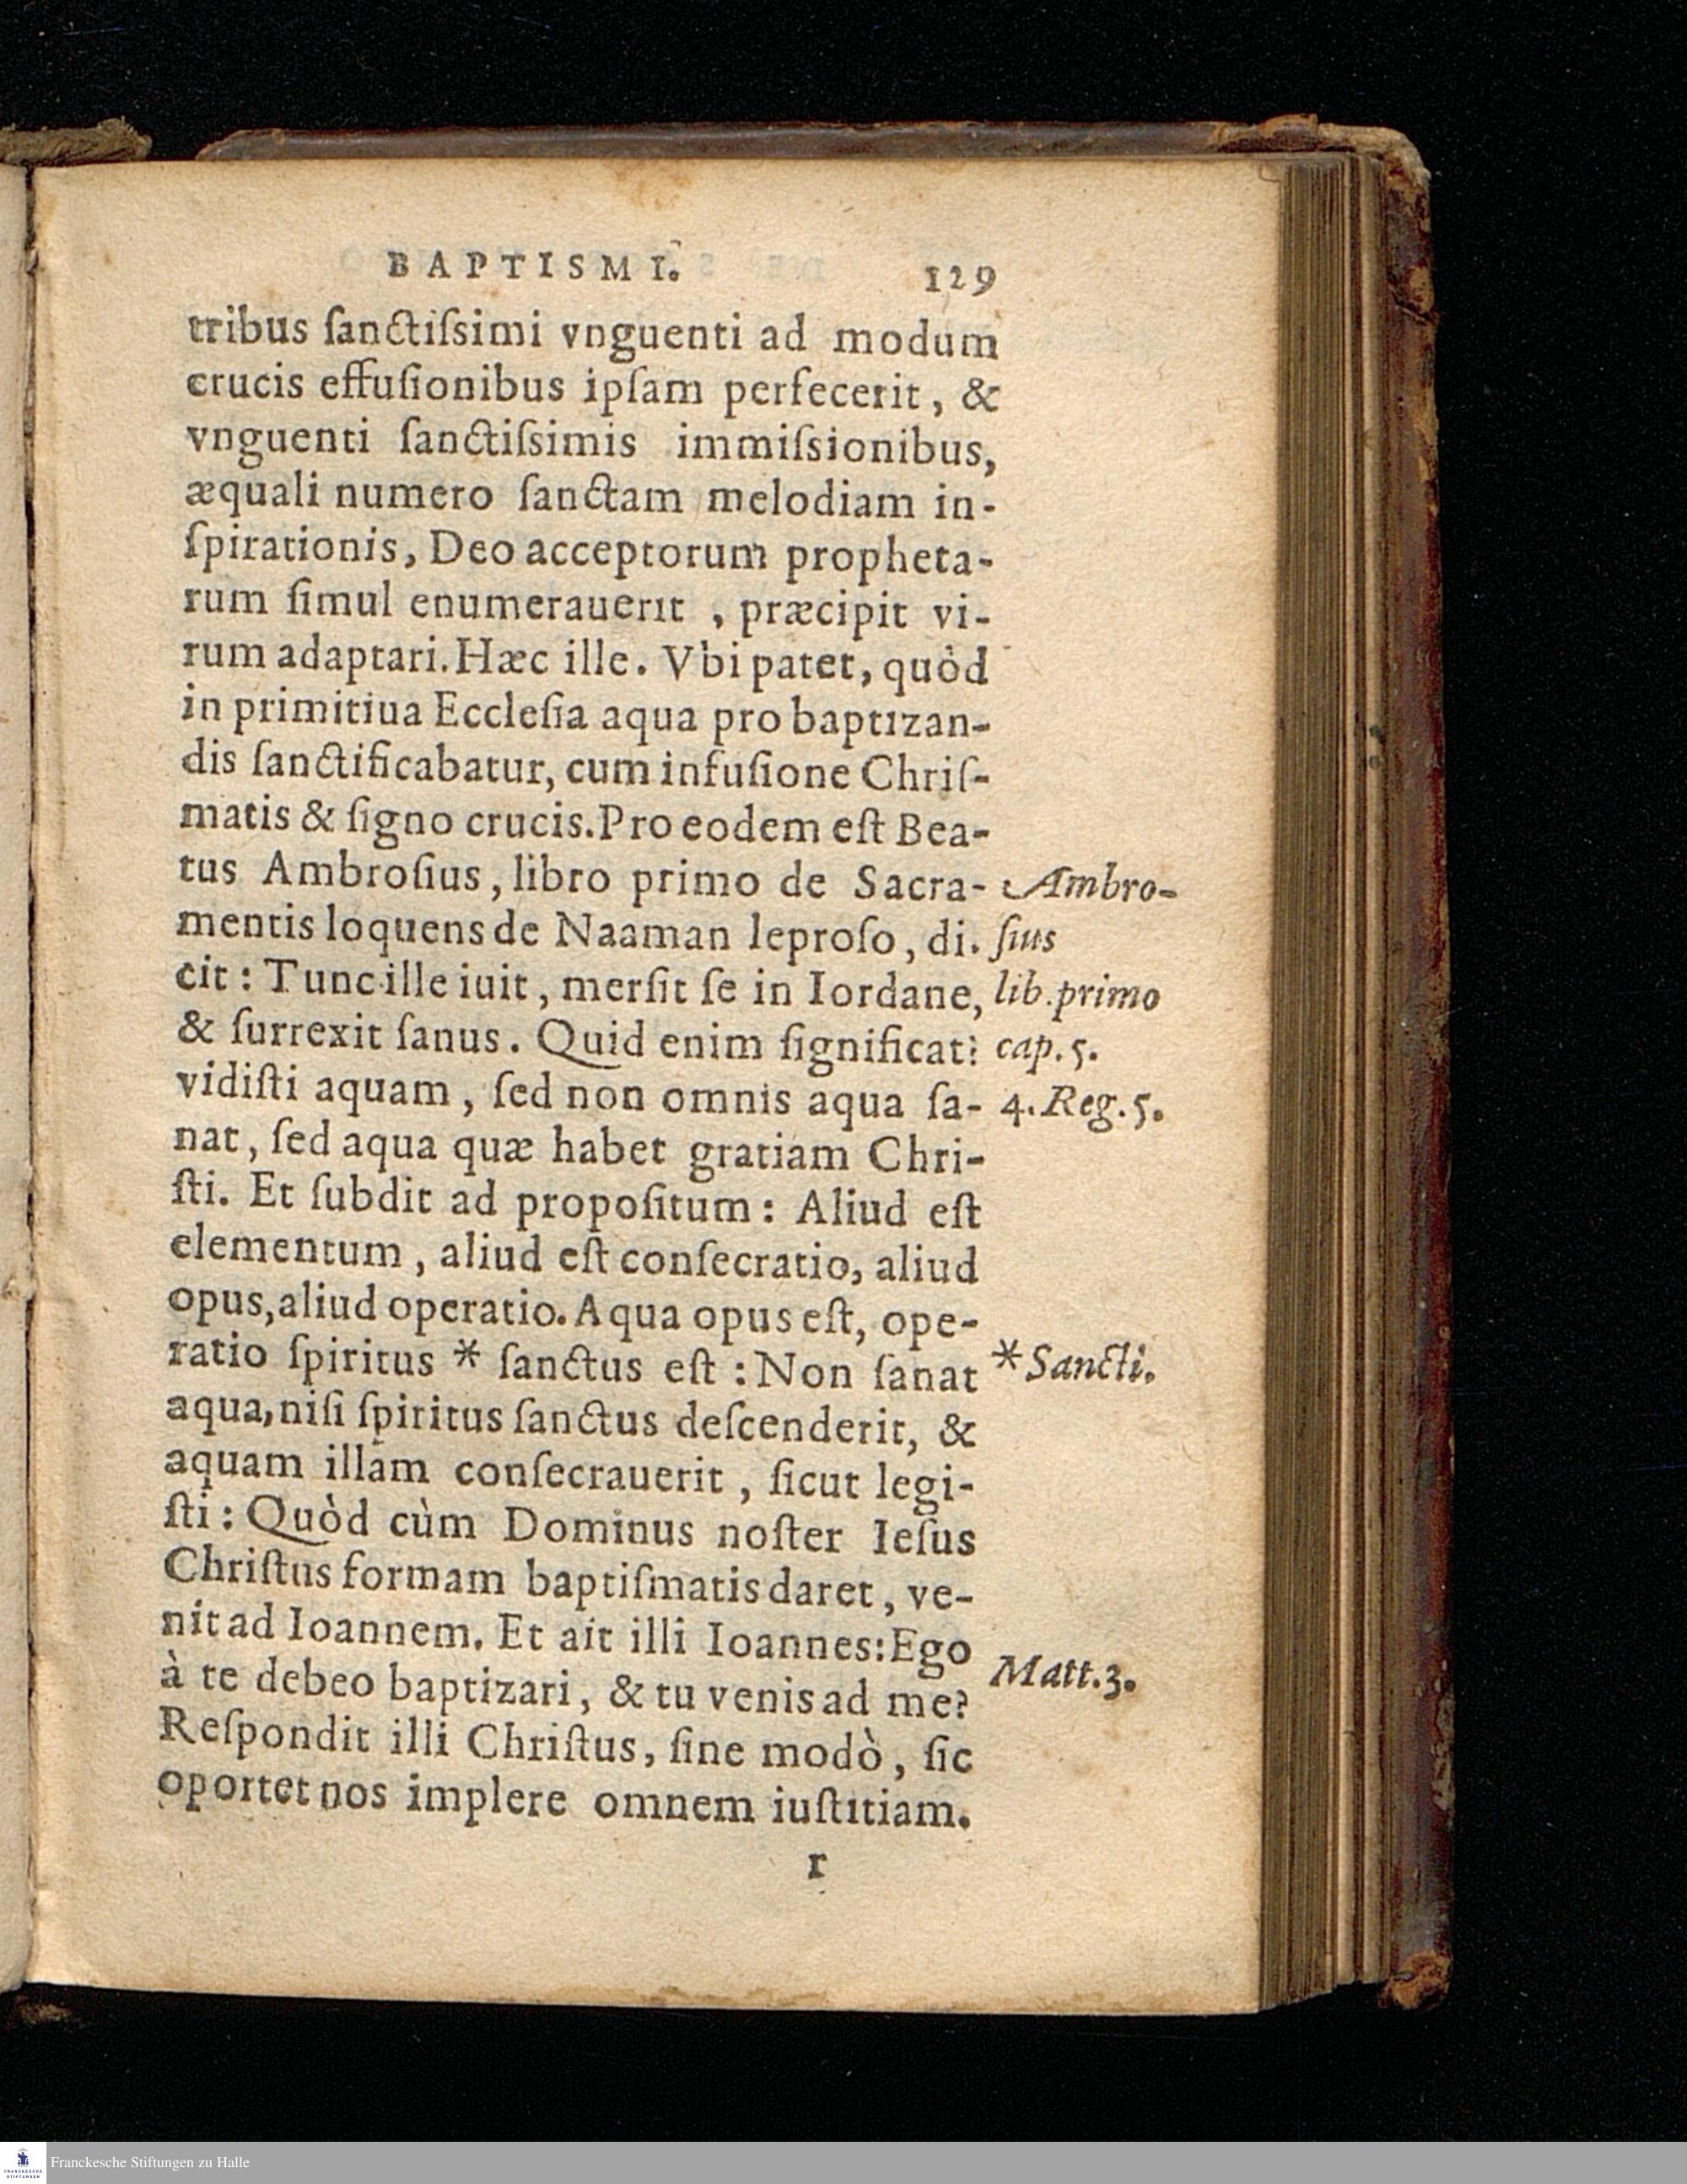 BAPTISMI. 129
tribus ſanctiſsimi vnguenti ad modum
crucis effuſionibus ipſam perfecerit, &
vnguenti ſanctiſsimis immiſsionibus,
æquali numero ſanctam melodiam in-
ſpirationis, Deo acceptorum propheta-
rum ſimul enumerauerit, præcipit vi-
rum adaptari. Hæc ille. Vbi patet, quòd
in primitiua Eccleſia aqua pro baptizan-
dis ſanctificabatur, cum infuſione Chriſ-
matis & ſigno crucis. Pro eodem eſt Bea-
tus Ambroſius, libro primo de Sacra-
mentis loquens de Naaman leproſo, di.
cit: Tunc ille iuit, merſit ſe in Iordane,
& ſurrexit ſanus. Quid enim ſignificat?
vidiſti aquam, ſed non omnis aqua ſa-
nat, ſed aqua quæ habet gratiam Chri-
ſti. Et ſubdit ad propoſitum: Aliud eſt
elementum, aliud eſt conſecratio, aliud
opus, aliud operatio. Aqua opus eſt, ope-
ratio ſpiritus * ſanctus eſt: Non ſanat
aqua, niſi ſpiritus ſanctus deſcenderit, &
aquam illam conſecrauerit, ſicut legi-
ſti: Quòd cùm Dominus noſter Ieſus
Chriſtus formam baptiſmatis daret, ve-
nit ad Ioannem. Et ait illi Ioannes: Ego
à te debeo baptizari, & tu venis ad me?
Reſpondit illi Chriſtus, ſine modò, ſic
oportet nos implere omnem iuſtitiam.
r
Ambro-
ſius
lib. primo
cap. 5.
4. Reg. 5.
*Sancti.
Matt. 3.
FRANCKESCHE
STIFTUNGEN
Franckesche Stiftungen zu Halle